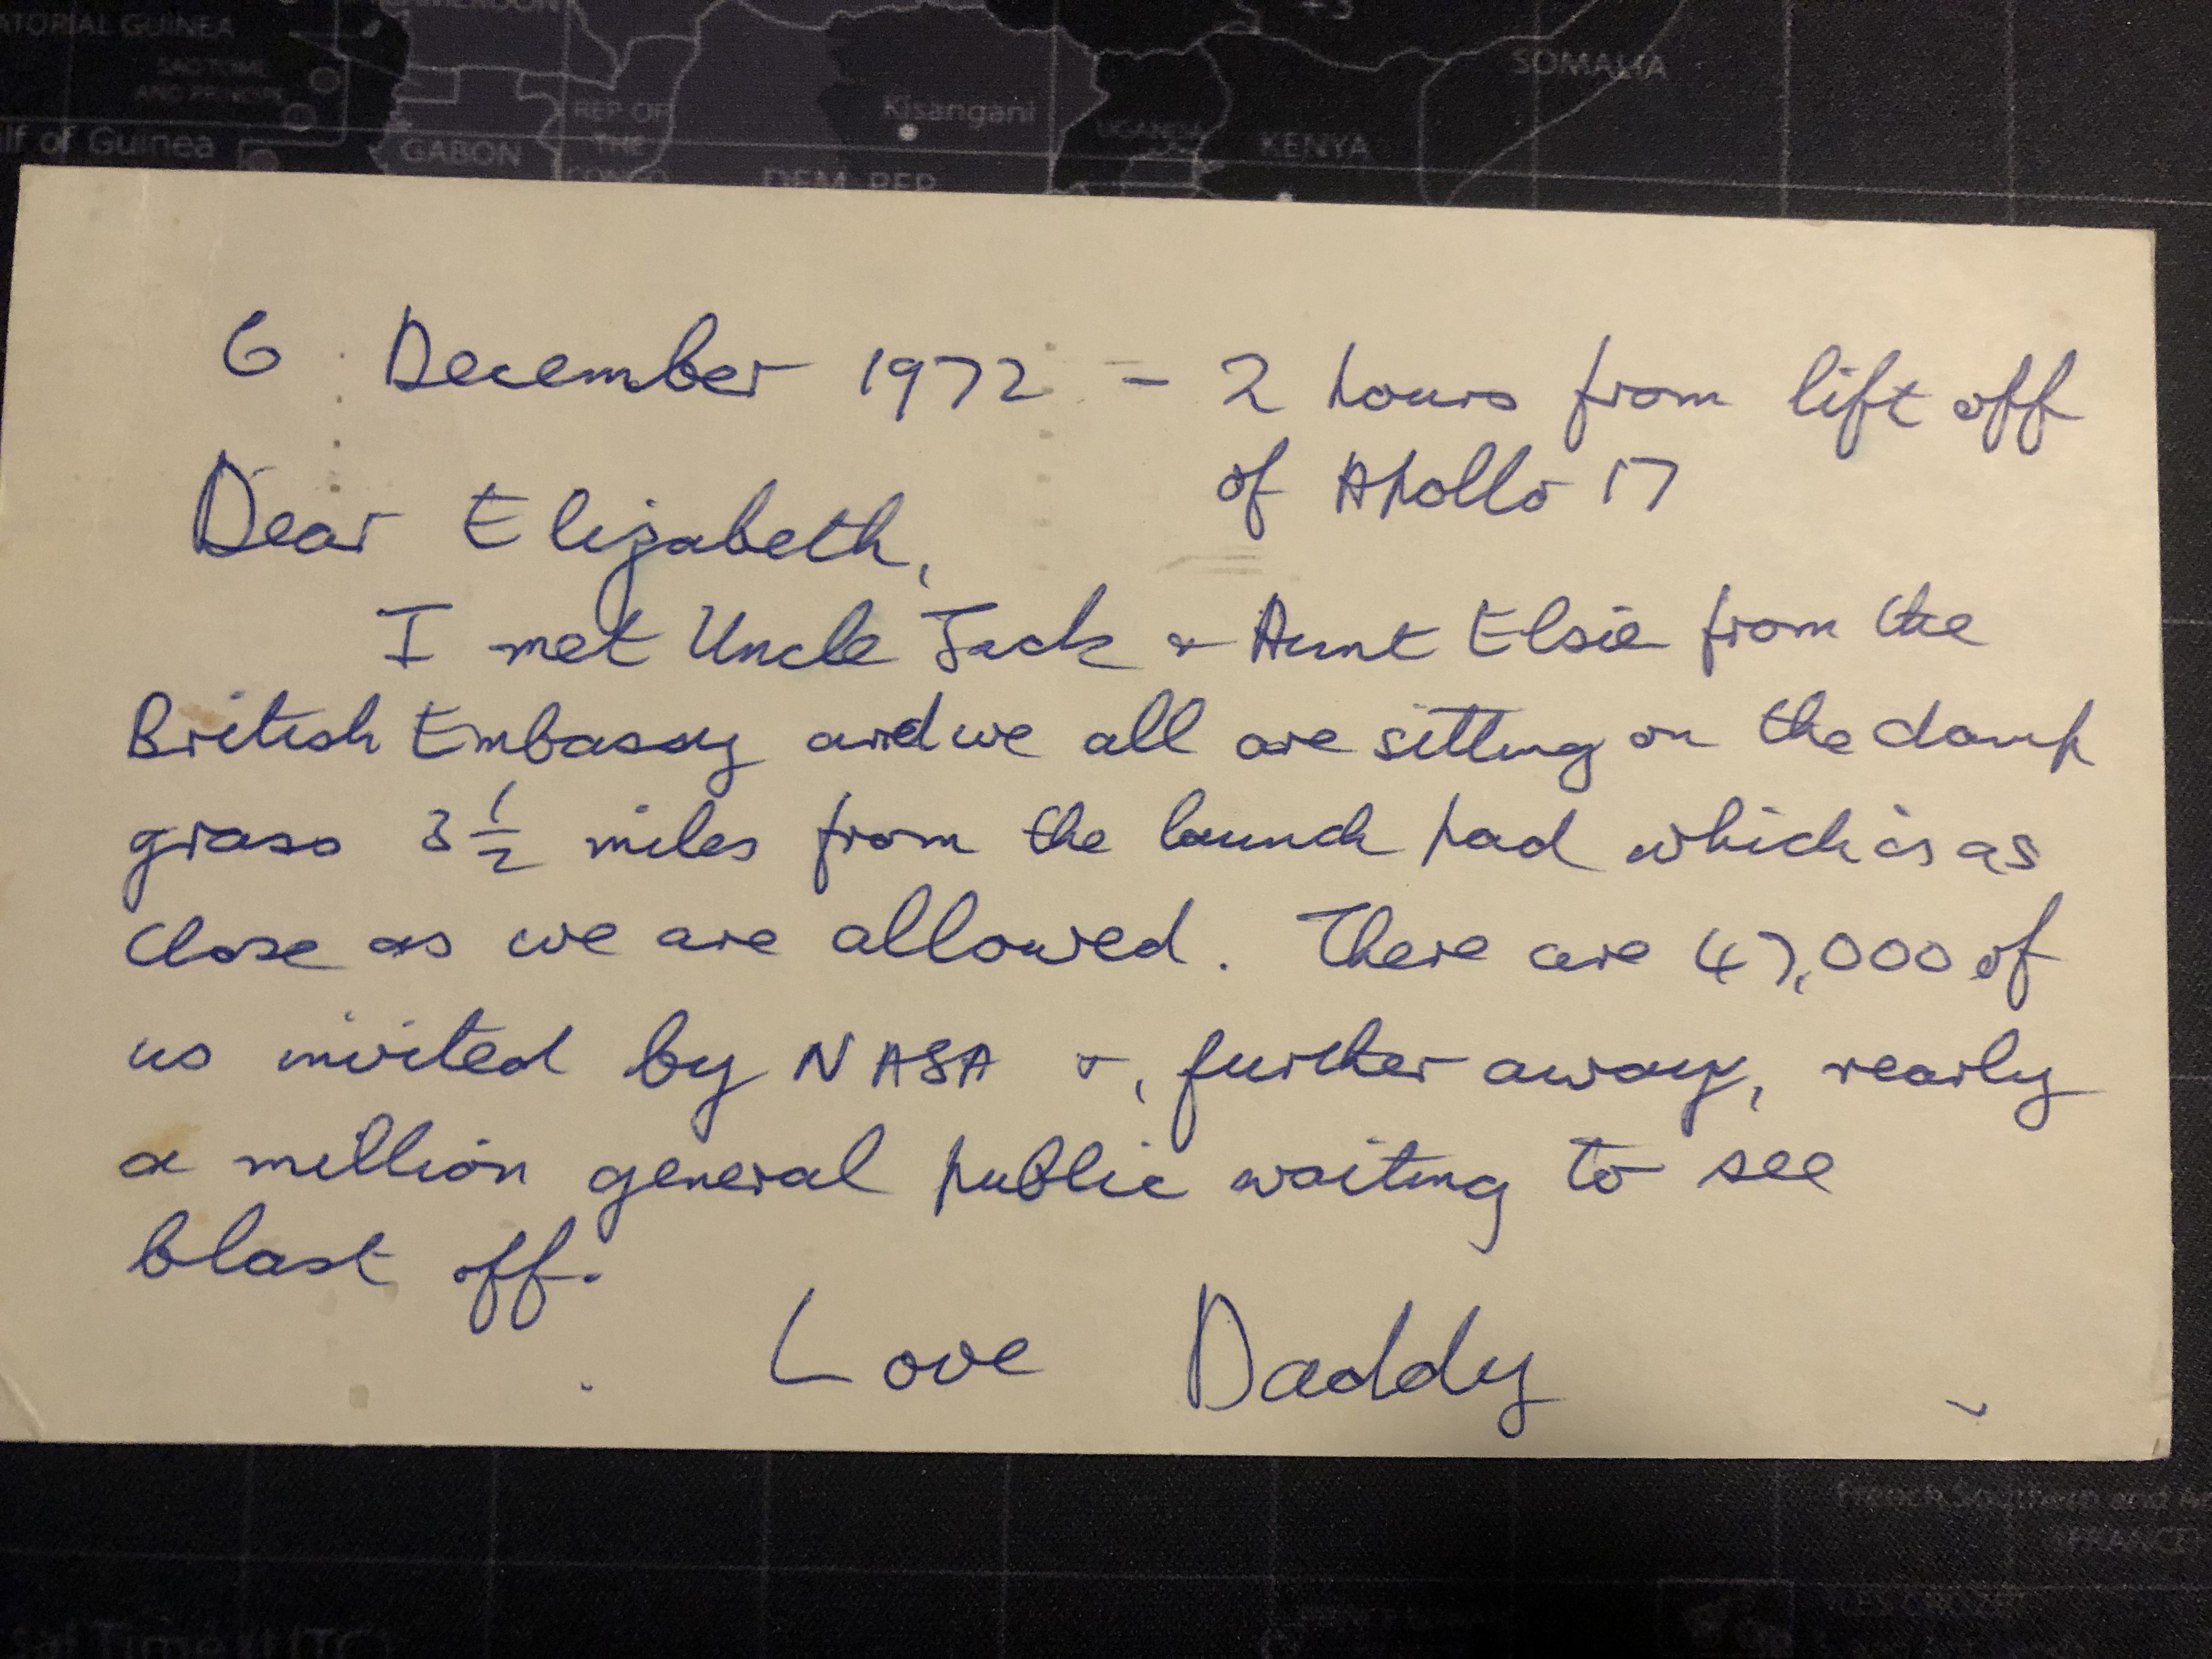 6 December 1972 - 2 hours from lift off
of Apollo 17
Dear Elizabeth,
I met Uncle Jack & Aunt Elsie from the
British Embassy and we all are sitting on the damp
grass 3½ miles from the launch pad which is as
close as we are allowed. There are 47,000 of
us invited by NASA &, further away, nearly
a million general public waiting to see
blast off.
Love Daddy
ATORIAL GUINEA
lf of Guinea
GABON
REP OF
THE
DEM REP
Kisangani
UGANDA
KENYA
SOMALIA